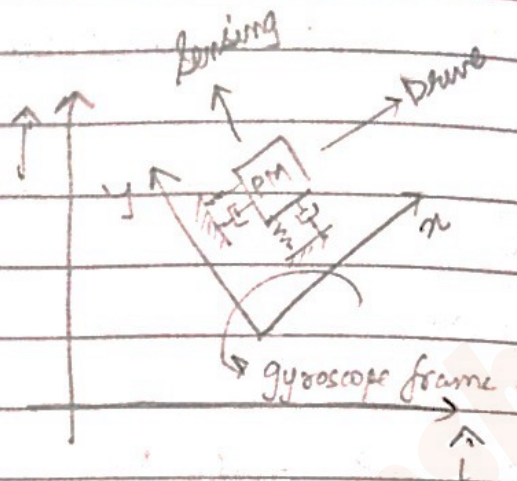 Sensing
Drive
y
PM
x
gyroscope frame